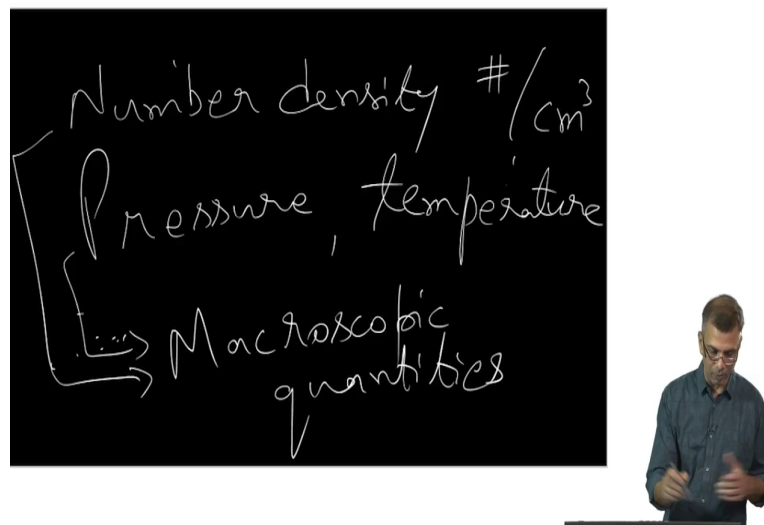 Number density #/cm³
Pressure, temperature
Macroscopic
quantities